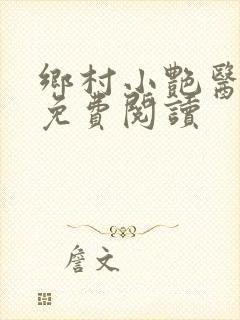 鄉村小艷醫
免費閱讀
詹文